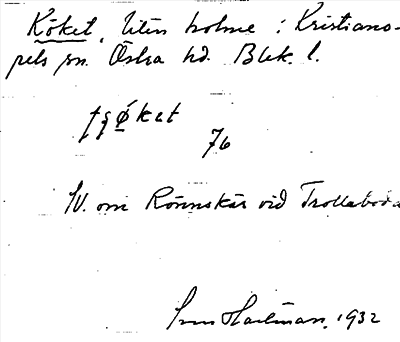 Köket, liten holme i Kristiano-
pels sn. Östra hd. Blek. l.
76
SV. om Rönnskär vid Trollaboda
Hartman, 1932